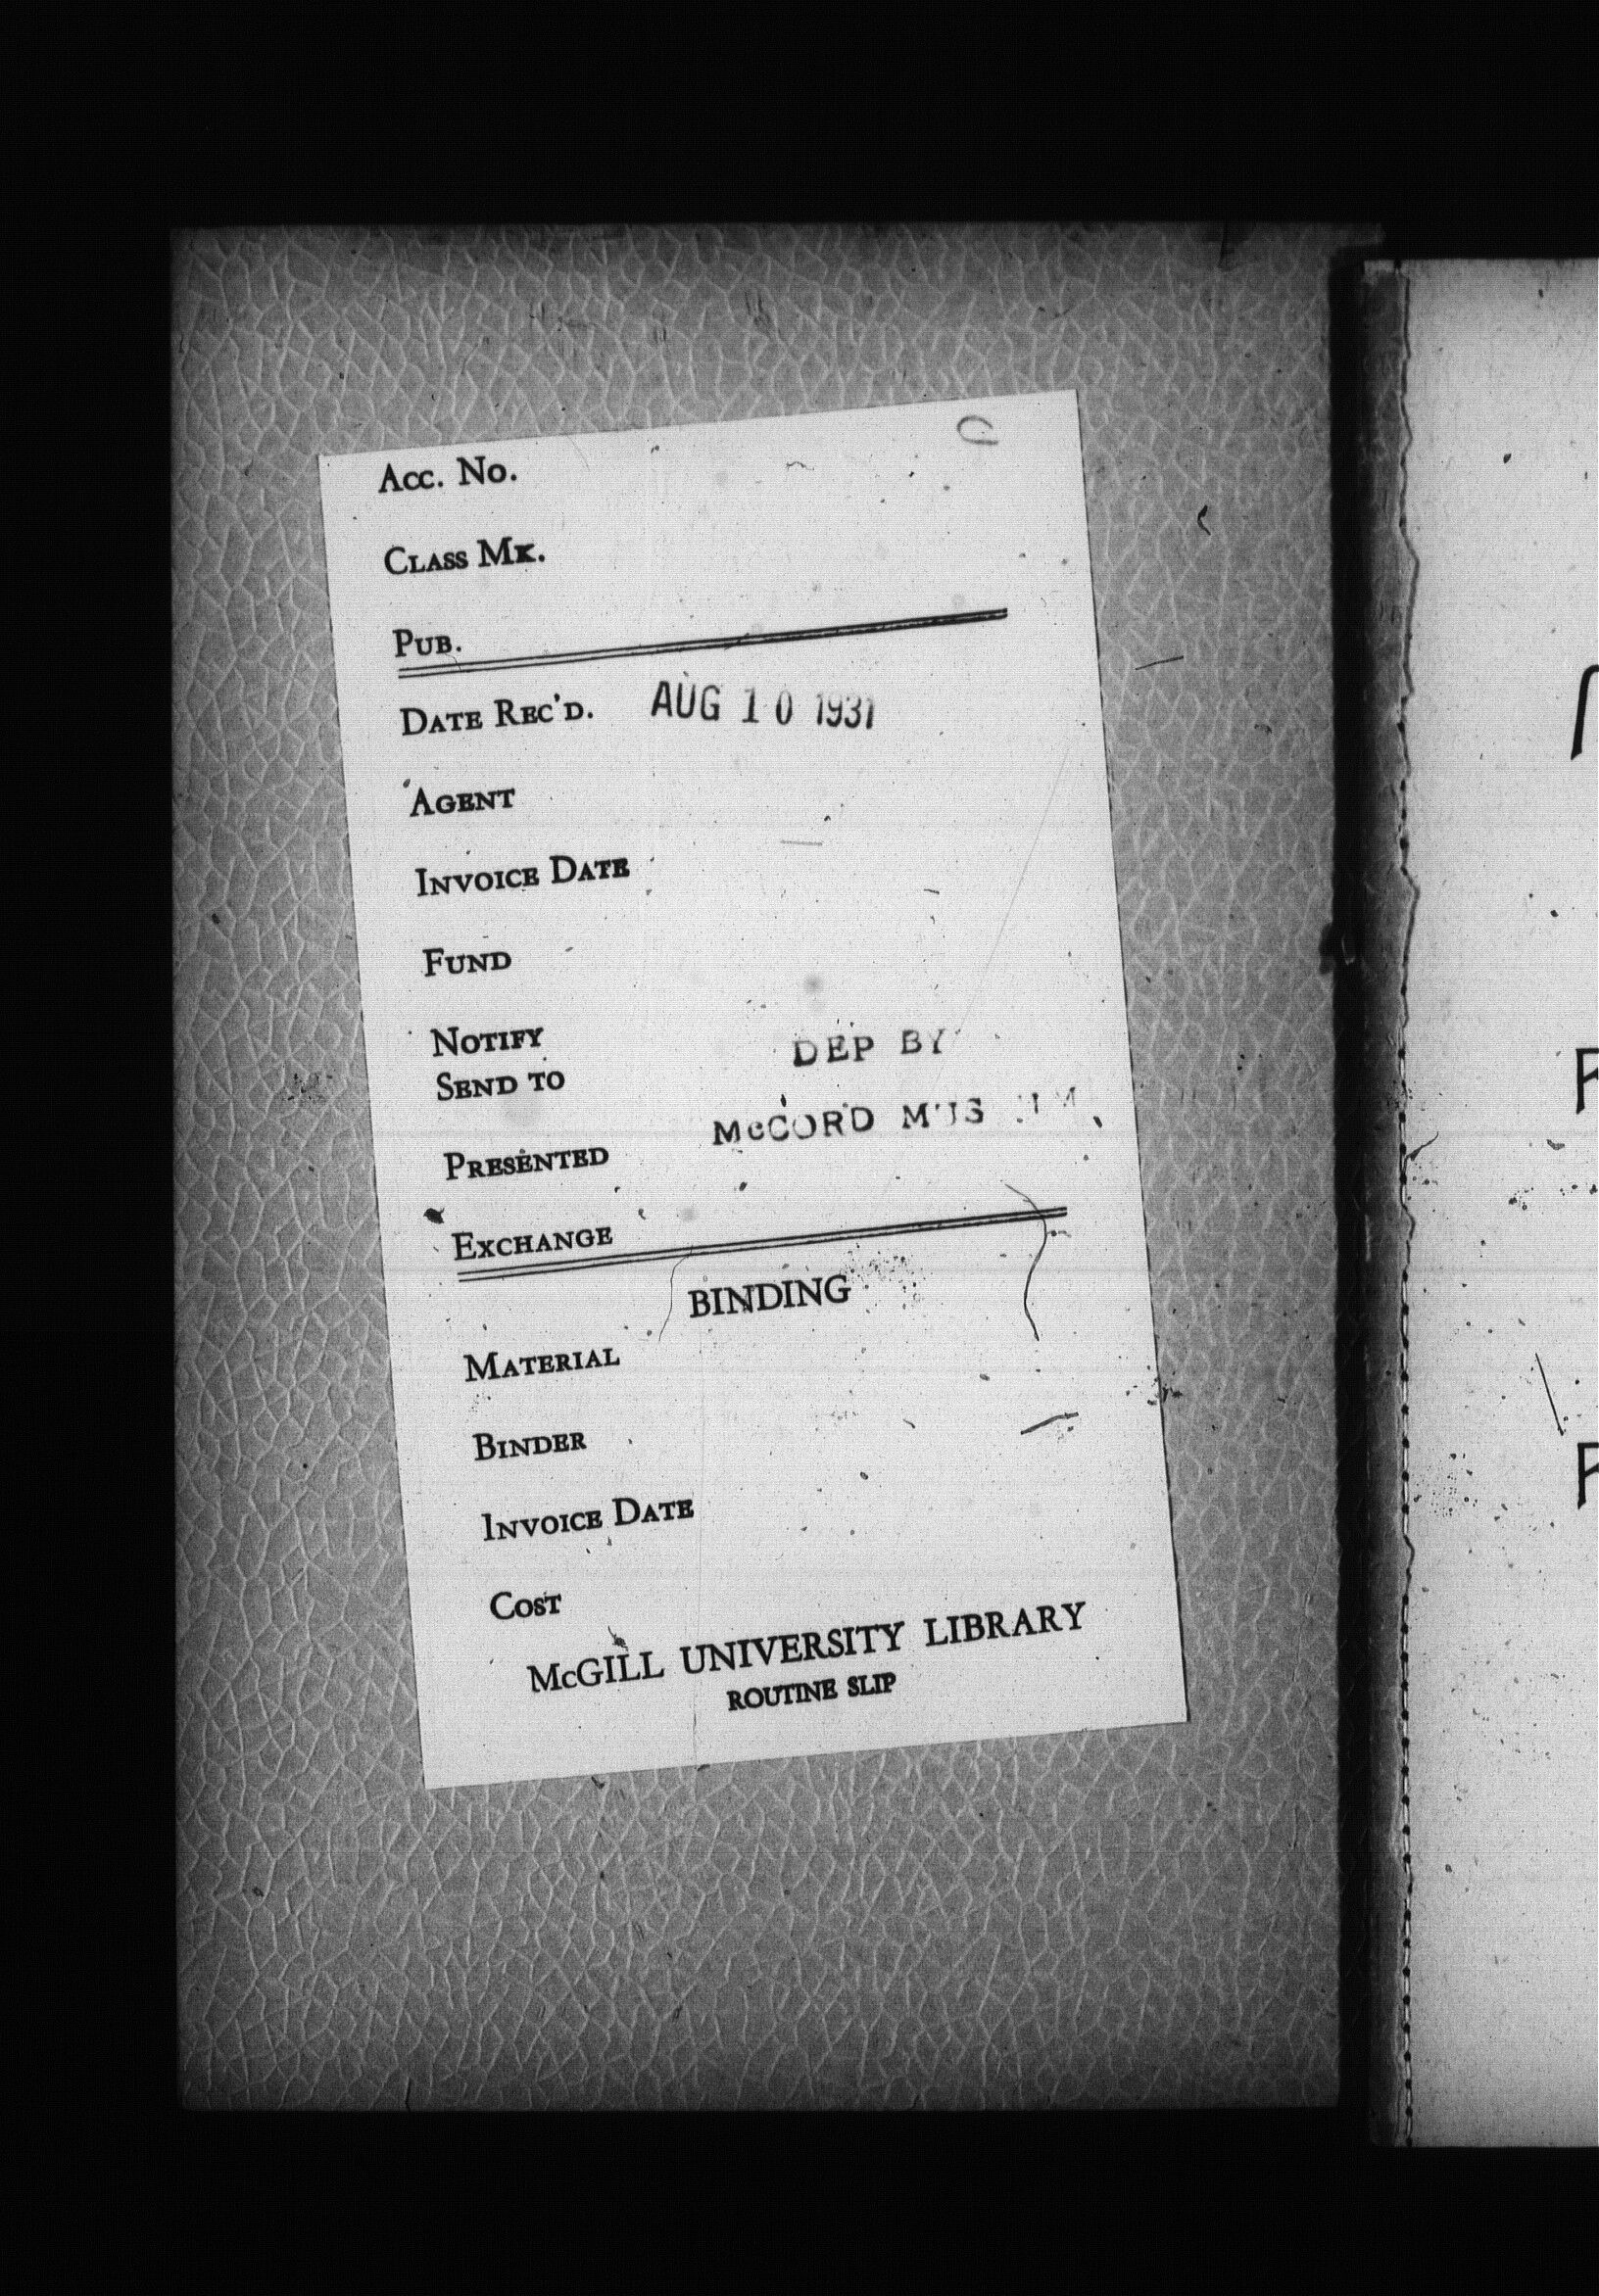 Acc. No.
Class Mk.
Pub.
Date Rec'd. AUG 10 1931
Agent
Invoice Date
Fund
Notify
Send to
DEP BY
McCORD
Presented
Exchange
BINDING
Material
Binder
Invoice Date
Cost
McGILL UNIVERSITY LIBRARY
ROUTINE SLIP